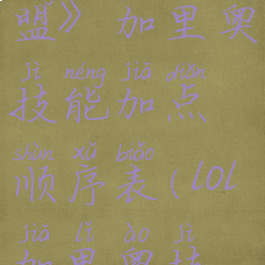 盟》加里奥
jì néng jiā diǎn
技能加点
shùn xù biǎo
顺序表(LOL
jiā lǐ ào jì
加里奥技